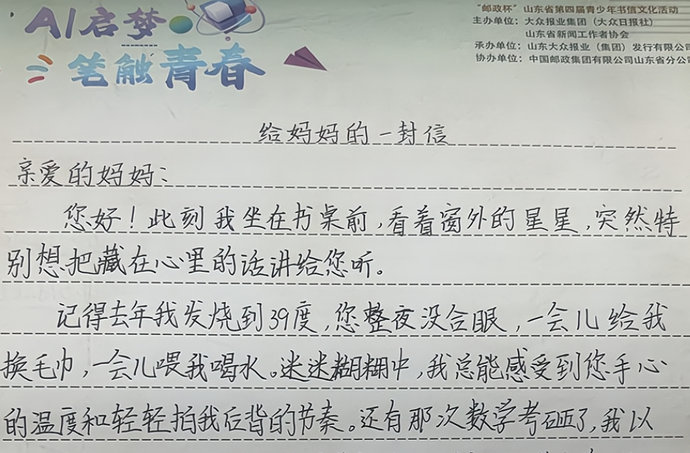 AI启梦
笔触青春
"邮政杯"山东省第四届青少年书信文化活动
主办单位：大众报业集团（大众日报社）
山东省新闻工作者协会
承办单位：山东大众报业（集团）发行有限公司
协办单位：中国邮政集团有限公司山东省分公司
给妈妈的一封信
亲爱的妈妈：
您好！此刻我坐在书桌前，看着窗外的星星，突然特
别想把藏在心里的话讲给您听。
记得去年我发烧到39度，您整夜没合眼，一会儿给我
换毛巾，一会儿喂我喝水。迷迷糊糊中，我总能感受到您手心
的温度和轻轻拍我后背的节奏。还有那次数学考砸了，我以